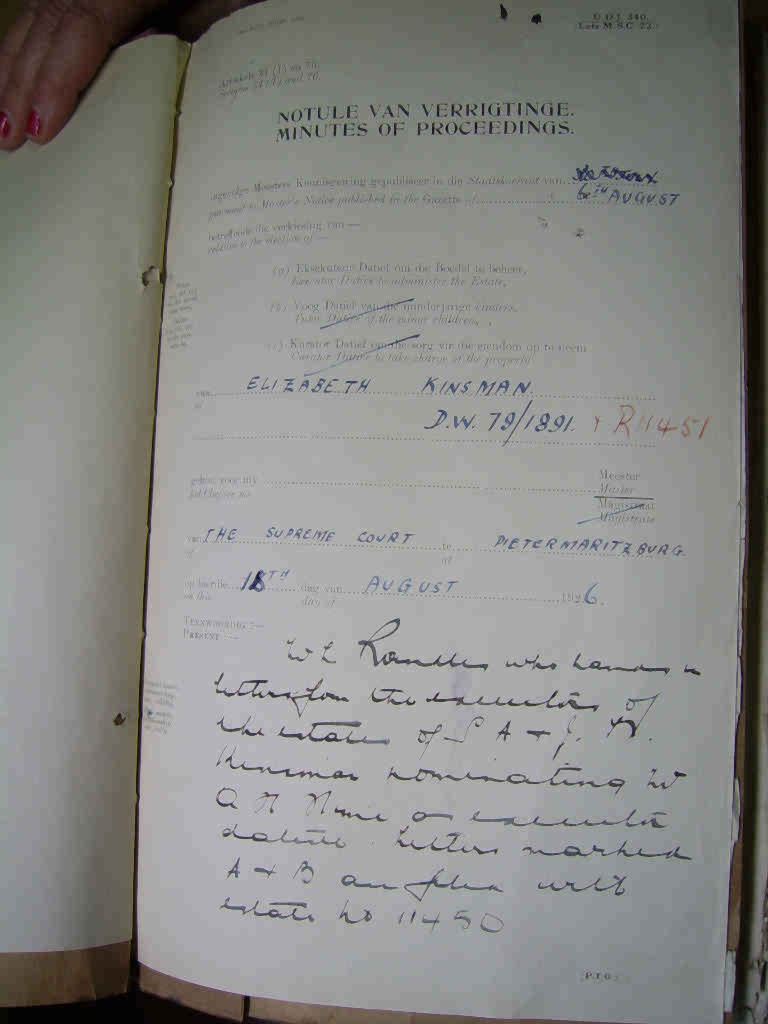 U.D.J. 340.
Late M.S.C. 22.
Artikels 31 (1) en 76.
NOTULE VAN VERRIGTINGE.
MINUTES OF PROCEEDINGS.
ingevolge Meesters Kennisgewing gepubliseer in die Staatskoerant van
pursuant to Master's Notice published in the Gazette of 6TH AUGUST
betreffende die verkiesing van —
relative to the election of —
(a) Eksekuteur Datief om die Boedel te beheer,
Executor Dative to administer the Estate,
(b) Voog Datief van die minderjarige kinders,
Tutor Dative of the minor children,
(c) Kurator Datief om die sorg vir die eiendom op te neem
Curator Dative to take charge of the property
van ELIZABETH KINSMAN
of
D.W. 79/1891. R 11451
gehou voor my Meester
held before me Master
Magistraat
Magistrate
van THE SUPREME COURT te PIETERMARITZBURG
of at
op hierdie 18TH dag van AUGUST 1926.
on this day of
TEENWOORDIG :—
PRESENT :—
who hands in
letters from the executors of
the estates of S A & J. W.
Kinsman nominating Mr
A H as executor
dative. Letters marked
A & B are filed with
estate No 11450
[P.T.O.